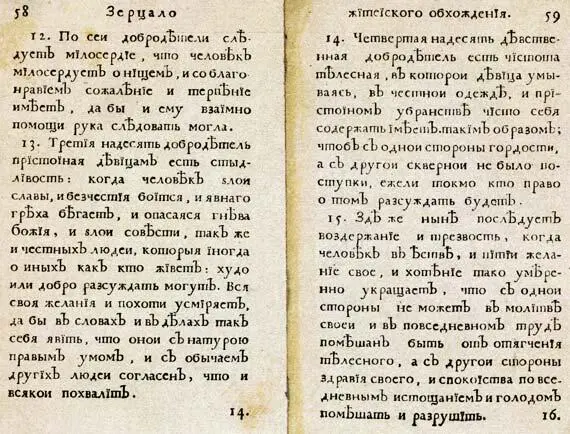 58 Зерцало
12. По сеи добродѣтели слѣ-
дуетъ мілосердіе, что человѣкъ
мілосердуетъ о ніщемъ, и со благо-
нравіемъ сожалѣніе и терпѣніе
имѣетъ, да бы и ему взаімно
помощи рука слѣдовать могла.
13. Третія надесять добродѣтель
прістоіная дѣвіцамъ есть стыд-
лівость: когда человѣкъ злои
славы, и безчестія боітся, и явнаго
грѣха бѣгаетъ, и опасаяся гнѣва
божія, и злои совѣсти, такъ же
и честныхъ людеи, которыя іногда
о иныхъ какъ кто жіветъ: худо
или добро разсуждать могутъ. Вся
своя желанія и похоти усміряетъ,
да бы въ словахъ и въ дѣлахъ такъ
себя явіть, что онои съ натурою
правымъ умомъ, и съ обычаемъ
другіхъ людеи согласенъ, что и
всякои похвалітъ.
14.
жітеіского обхожденія. 59
14. Четвертая надесять дѣвстве-
нная добродѣтель есть чістота
тѣлесная, въ которои дѣвіца умы-
ваясь, въ честнои одеждѣ, и прі-
стоіномъ убранствѣ чісто себя
содержать імѣетъ. такімъ образомъ;
чтобъ съ однои стороны гордости,
а съ другои сквернои не было по-
ступки, ежели токмо кто право
о томъ разсуждать будетъ.
15. Здѣ же нынѣ послѣдуетъ
воздержаніе и трезвость, когда
человѣкъ въ ѣствѣ, и пітіи жела-
ніе свое, и хотѣніе тако умѣре-
нно укращаетъ, что съ однои
стороны не можетъ въ молітвѣ
своеи и въ повседневномъ трудѣ
помѣшанъ быть отъ отягченія
тѣлесного, а съ другои стороны
здравія своего, и спокоіства по все-
дневнымъ істощаніемъ и голодомъ
помѣшать и разрушіть. 16.